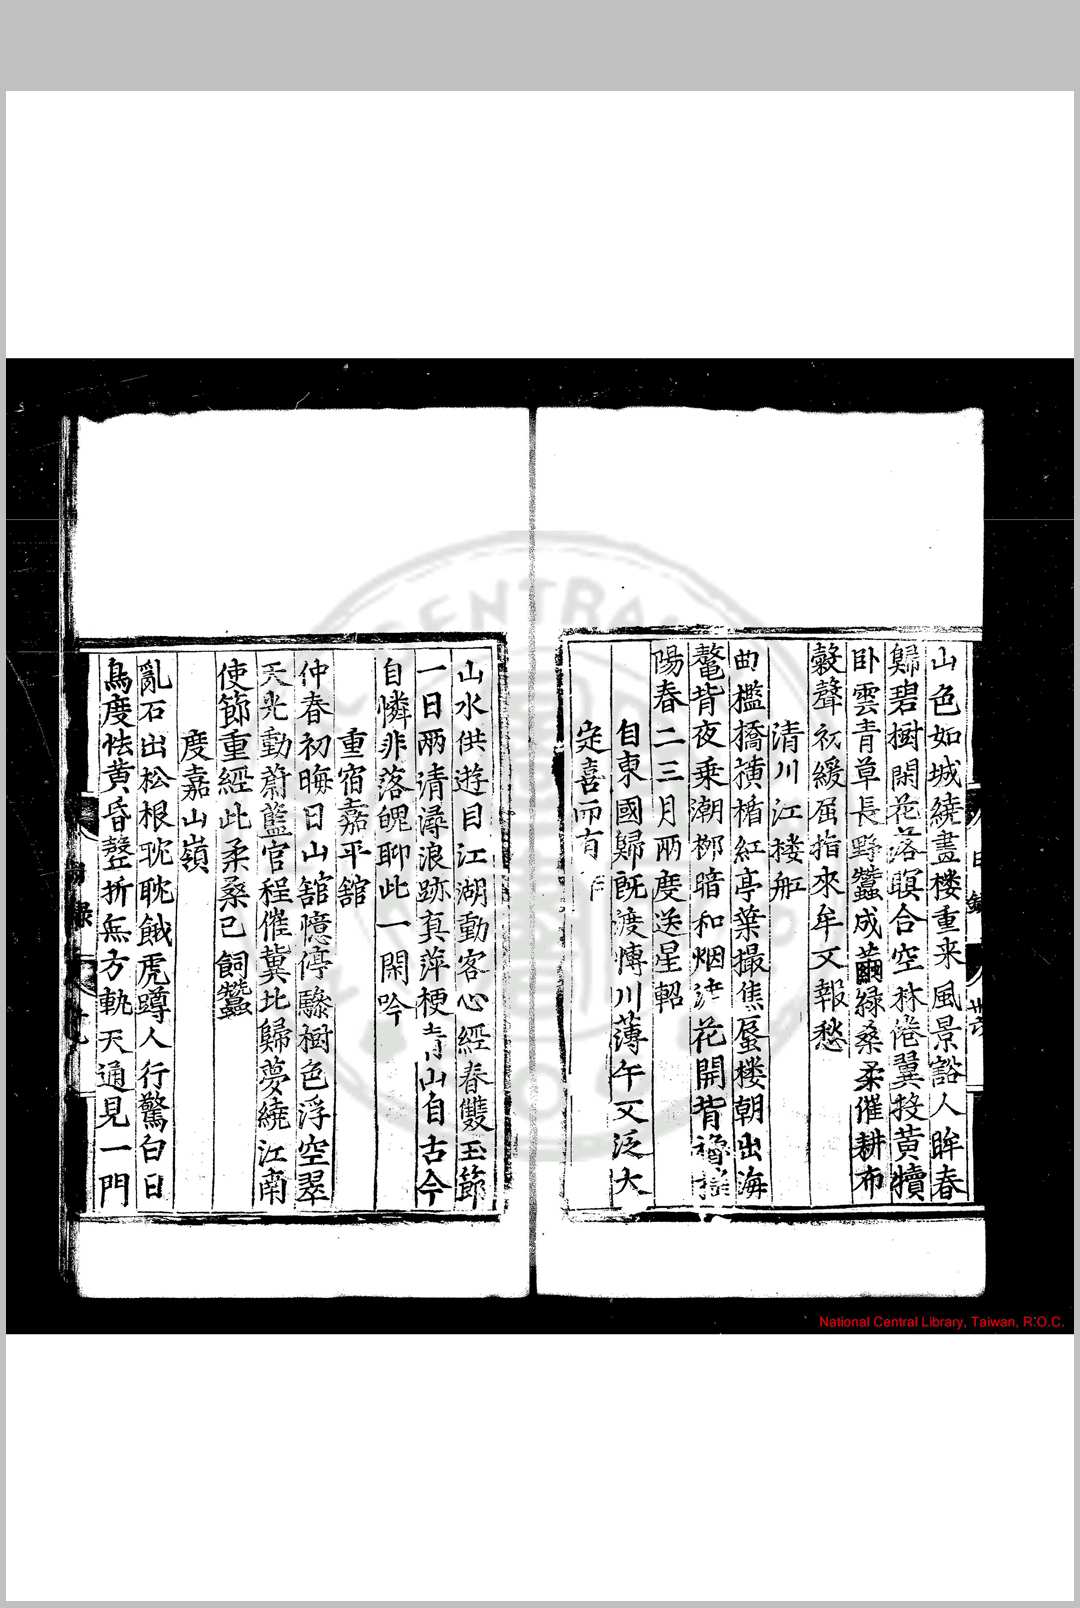 山色如城繞畫樓重来風景豁人眸春
歸碧樹閑花落暝合空林倦翼投黃犢
卧雲青草長野蠶成繭綠桑柔催耕布
穀聲初緩屈指來牟又報愁
清川江楼舡
曲檻橋横楯紅亭葉撮焦蜃楼朝出海
鼇背夜乗潮栁暗和烟 花開背
陽春二三月兩度送星軺
自東國歸旣渡慱川薄午又泛大
定喜而有
山水供遊目江湖動客心經春雙玉節
一日兩清潯浪跡真萍梗青山自古今
自憐非落魄聊此一閑吟
重宿嘉平舘
仲春初晦日山舘憶停驂樹色浮空翠
天光動蔚藍官程催冀北歸夢繞江南
使節重經此柔桑已飼蠶
度嘉山嶺
亂石出松根眈眈餓虎蹲人行驚白日
鳥度怯黃昏磬折無方軌天通見一門
National Central Library, Taiwan, R.O.C.